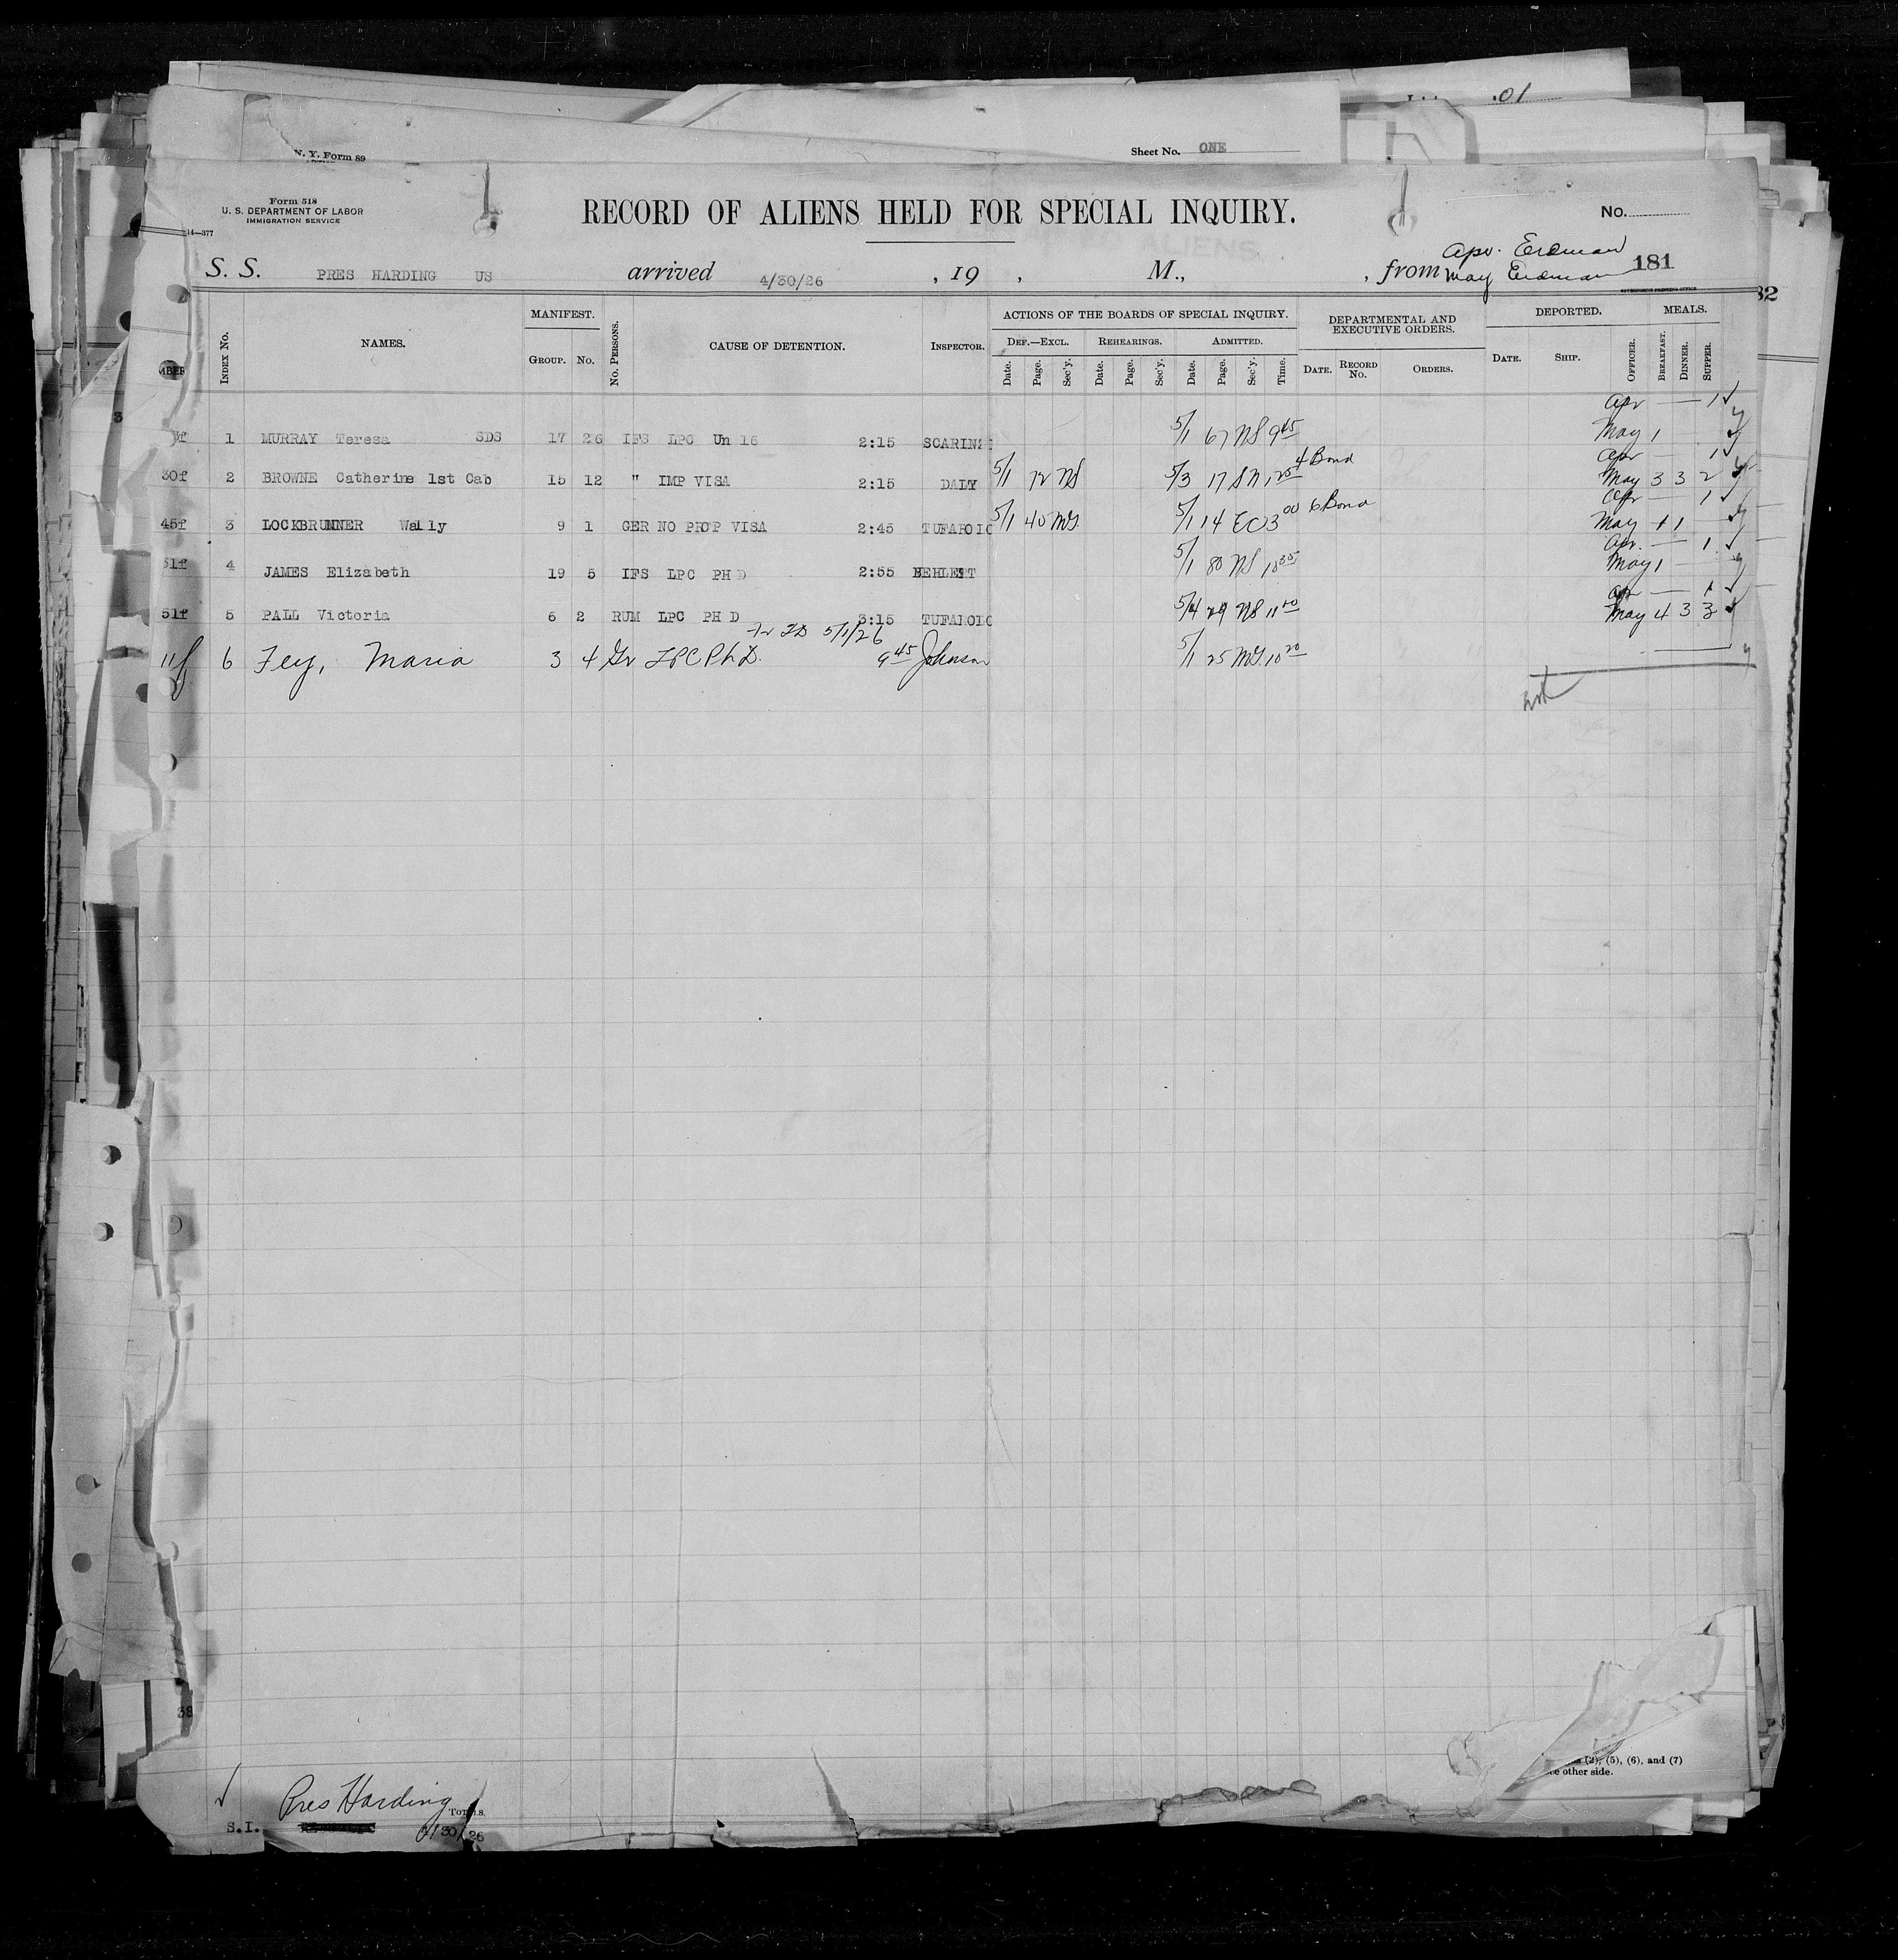 .01
N. Y. Form 89
Sheet No. ONE
Form 518
U. S. DEPARTMENT OF LABOR
IMMIGRATION SERVICE
14—377
RECORD OF ALIENS HELD FOR SPECIAL INQUIRY.
No.
S. S. PRES HARDING US arrived 4/30/26 , 19 , M., , from Apr. Erdman
May Erdman 181
82
INDEX No. NAMES. MANIFEST. GROUP. No. No. PERSONS. CAUSE OF DETENTION. INSPECTOR. ACTIONS OF THE BOARDS OF SPECIAL INQUIRY. DEPARTMENTAL AND EXECUTIVE ORDERS. DEPORTED. MEALS.
DEF.—EXCL. REHEARINGS. ADMITTED.
Date. Page. Sec'y. Date. Page. Sec'y. Date. Page. Sec'y. Time. DATE. RECORD No. ORDERS. DATE. SHIP. OFFICER. BREAKFAST. DINNER. SUPPER.
Apr — — 1
1 MURRAY Teresa SDS 17 26 IFS LPC Un 16 2:15 SCARINZI 5/1 67 NS 9 45 May 1
Apr — 1
30f 2 BROWNE Catherine 1st Cab 15 12 " IMP VISA 2:15 DALY 5/1 72 NS 5/3 17 SN 1 25 4 Bond May 3 3 2
Apr — 1
45f 3 LOCKBRUNNER Wally 9 1 GER NO PROP VISA 2:45 TUFAROLO 5/1 40 MG 5/11 4 EC 3 00 6 Bond May 1 1 —
Apr. — 1
51f 4 JAMES Elizabeth 19 5 IFS LPC PH D 2:55 5/1 80 NS 10 35 May 1 —
Apr — 1
51f 5 PALL Victoria 6 2 RUM LPC PH D 3:15 TUFAROLO 5/4 29 NS 11 10 May 4 3 3
5/1/26
11f 6 Fey, Maria 3 4 Gr LPC Ph.D. 9 45 Johnson 5/1 25 MG 10 20
(2), (5), (6), and (7)
other side.
Pres Harding
TOTALS.
S.I. 4/30/26